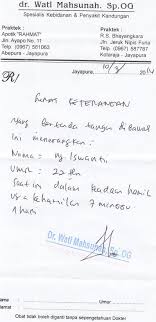 dr. Wati Mahsunah. Sp.OG
Spesialis Kebidanan & Penyakit Kandungan
Praktek :
Apotik "RAHMAT"
Jln. Ayapo No. 11
Telp (0967) 561063
Abepura - Jayapura
Praktek :
R.S. Bhayangkara
Jln. Jeruk Nipis Furia
Telp (0967) 587787
Kotaraja - Jayapura
Jayapura,
R/
SURAT KETERANGAN
Yang bertanda tangan di bawah
ini menerangkan :
Nama : Ny. Iswanti
Umur : 22 thn
Saat ini dalam keadaan hamil
usia kehamilan 7 minggu
1 hari
Dr. Wati Mahsunah, Sp. OG
Nama :
Umur :
Alamat :
Obat tidak boleh diganti tanpa sepengetahuan Dokter